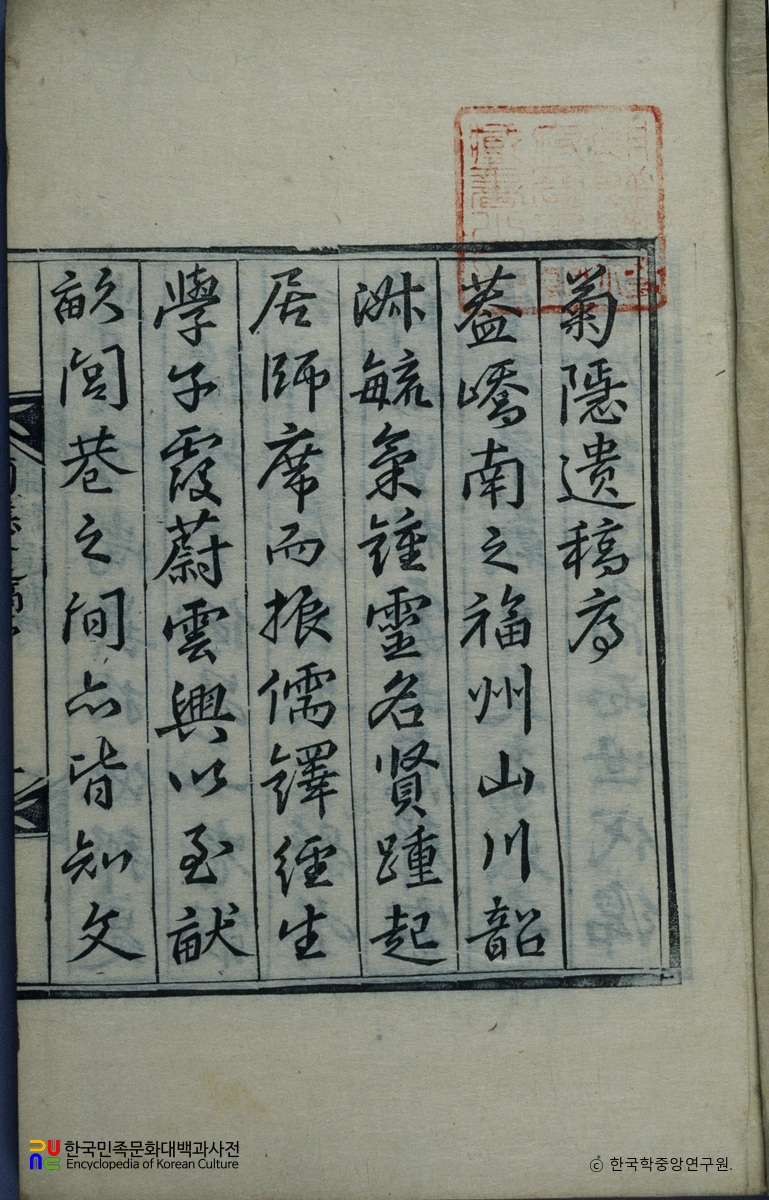 菊隱遺稿序
蓋嶠南之福州山川韶
淋毓氣鍾靈名賢踵起
居師席而振儒鐸經生
學子霞蔚雲興以至畎
畝閭巷之間亦皆知文
한국민족문화대백과사전
Encyclopedia of Korean Culture
ⓒ 한국학중앙연구원.